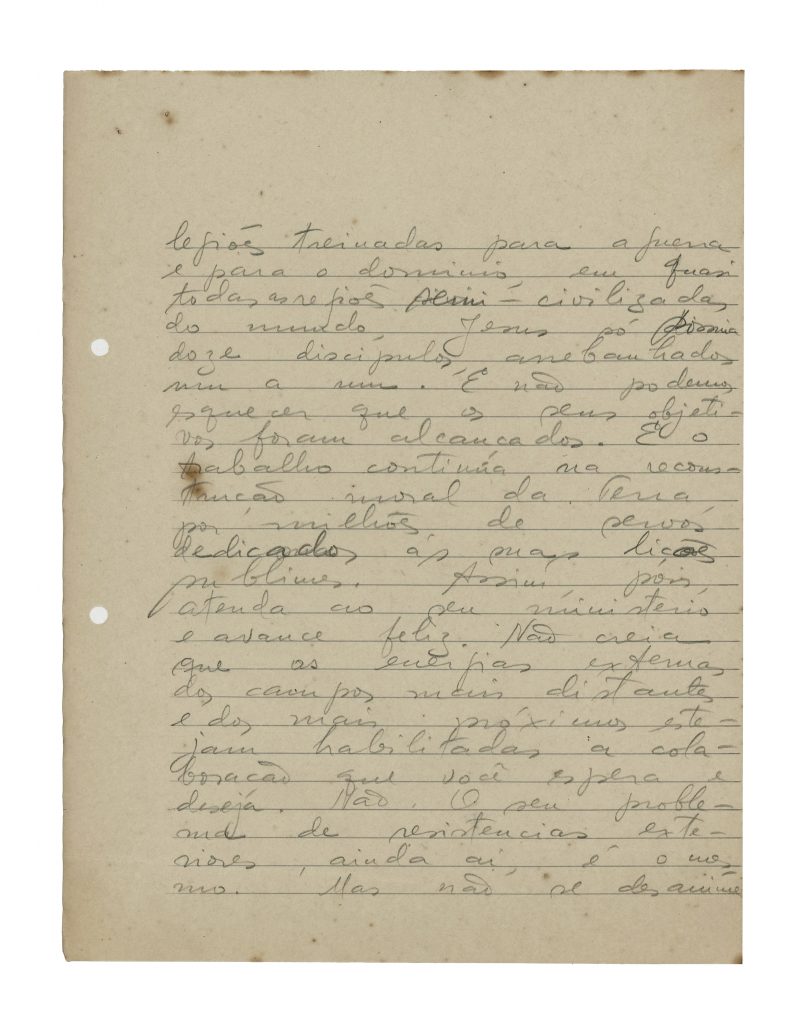 legiões treinadas para a guerra
e para o dominio, em quasi
todas as regiões semi-civilizadas
do mundo, Jesus só possuia
doze discípulos, arrebanhados
um a um. E não podemos
esquecer que os seus objeti-
vos foram alcancados. E o
trabalho continúa na recons-
trucão moral da Terra
por milhões de servos
dedicados ás suas lições
sublimes. Assim, pois,
atenda ao seu ministerio
e avance feliz. Não creia
que as energias externas
dos campos mais distantes
e dos mais próximos este-
jam habilitadas á cola-
boracão que você espera e
deseja. Não. O seu proble-
ma de resistencias exte-
riores, ainda ai, é o mes
mo. Mas não se desanime